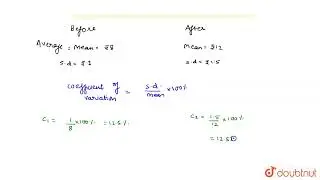 Before After
Average = Mean = ₹8 Mean = ₹12
s.d = ₹1 s.d = ₹1.5
coefficient of variation = s.d. / mean × 100%
C₁ = 1/8 × 100% = 12.5% C₂ = 1.5/12 × 100%
= 12.5%
doubtnut